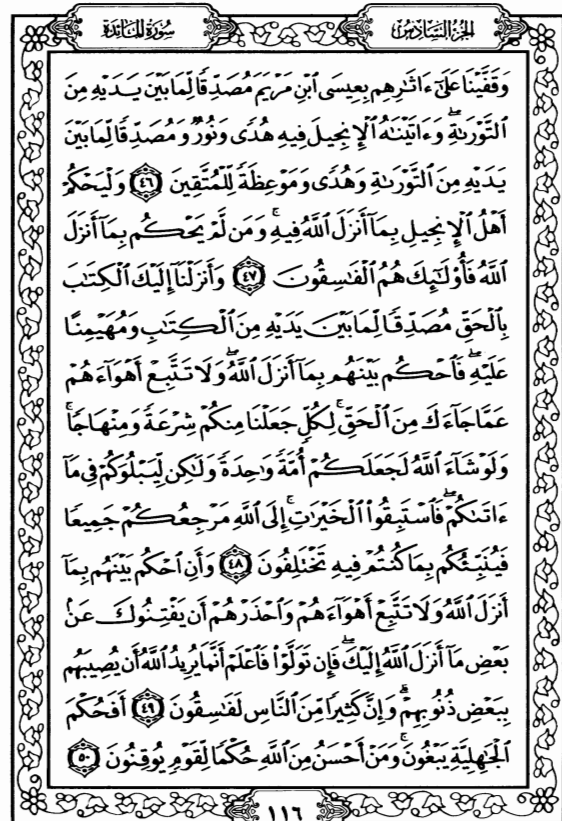 سُورَةُ المَائدة
الجزء السَّادِس
وَقَفَّيْنَا عَلَىٰٓ ءَاثَٰرِهِم بِعِيسَى ٱبْنِ مَرْيَمَ مُصَدِّقًا لِّمَا بَيْنَ يَدَيْهِ مِنَ
ٱلتَّوْرَىٰةِۖ وَءَاتَيْنَٰهُ ٱلْإِنجِيلَ فِيهِ هُدًى وَنُورٌ وَمُصَدِّقًا لِّمَا بَيْنَ
يَدَيْهِ مِنَ ٱلتَّوْرَىٰةِ وَهُدًى وَمَوْعِظَةً لِّلْمُتَّقِينَ ٤٦ وَلْيَحْكُمْ
أَهْلُ ٱلْإِنجِيلِ بِمَآ أَنزَلَ ٱللَّهُ فِيهِۚ وَمَن لَّمْ يَحْكُم بِمَآ أَنزَلَ
ٱللَّهُ فَأُو۟لَٰٓئِكَ هُمُ ٱلْفَٰسِقُونَ ٤٧ وَأَنزَلْنَآ إِلَيْكَ ٱلْكِتَٰبَ
بِٱلْحَقِّ مُصَدِّقًا لِّمَا بَيْنَ يَدَيْهِ مِنَ ٱلْكِتَٰبِ وَمُهَيْمِنًا
عَلَيْهِۖ فَٱحْكُم بَيْنَهُم بِمَآ أَنزَلَ ٱللَّهُۖ وَلَا تَتَّبِعْ أَهْوَآءَهُمْ
عَمَّا جَآءَكَ مِنَ ٱلْحَقِّۚ لِكُلٍّ جَعَلْنَا مِنكُمْ شِرْعَةً وَمِنْهَاجًاۚ
وَلَوْ شَآءَ ٱللَّهُ لَجَعَلَكُمْ أُمَّةً وَٰحِدَةً وَلَٰكِن لِّيَبْلُوَكُمْ فِى مَآ
ءَاتَىٰكُمْۖ فَٱسْتَبِقُوا۟ ٱلْخَيْرَٰتِۚ إِلَى ٱللَّهِ مَرْجِعُكُمْ جَمِيعًا
فَيُنَبِّئُكُم بِمَا كُنتُمْ فِيهِ تَخْتَلِفُونَ ٤٨ وَأَنِ ٱحْكُم بَيْنَهُم بِمَآ
أَنزَلَ ٱللَّهُ وَلَا تَتَّبِعْ أَهْوَآءَهُمْ وَٱحْذَرْهُمْ أَن يَفْتِنُوكَ عَنۢ
بَعْضِ مَآ أَنزَلَ ٱللَّهُ إِلَيْكَۖ فَإِن تَوَلَّوْا۟ فَٱعْلَمْ أَنَّمَا يُرِيدُ ٱللَّهُ أَن يُصِيبَهُم
بِبَعْضِ ذُنُوبِهِمْۗ وَإِنَّ كَثِيرًا مِّنَ ٱلنَّاسِ لَفَٰسِقُونَ ٤٩ أَفَحُكْمَ
ٱلْجَٰهِلِيَّةِ يَبْغُونَۚ وَمَنْ أَحْسَنُ مِنَ ٱللَّهِ حُكْمًا لِّقَوْمٍ يُوقِنُونَ ٥٠
١١٦